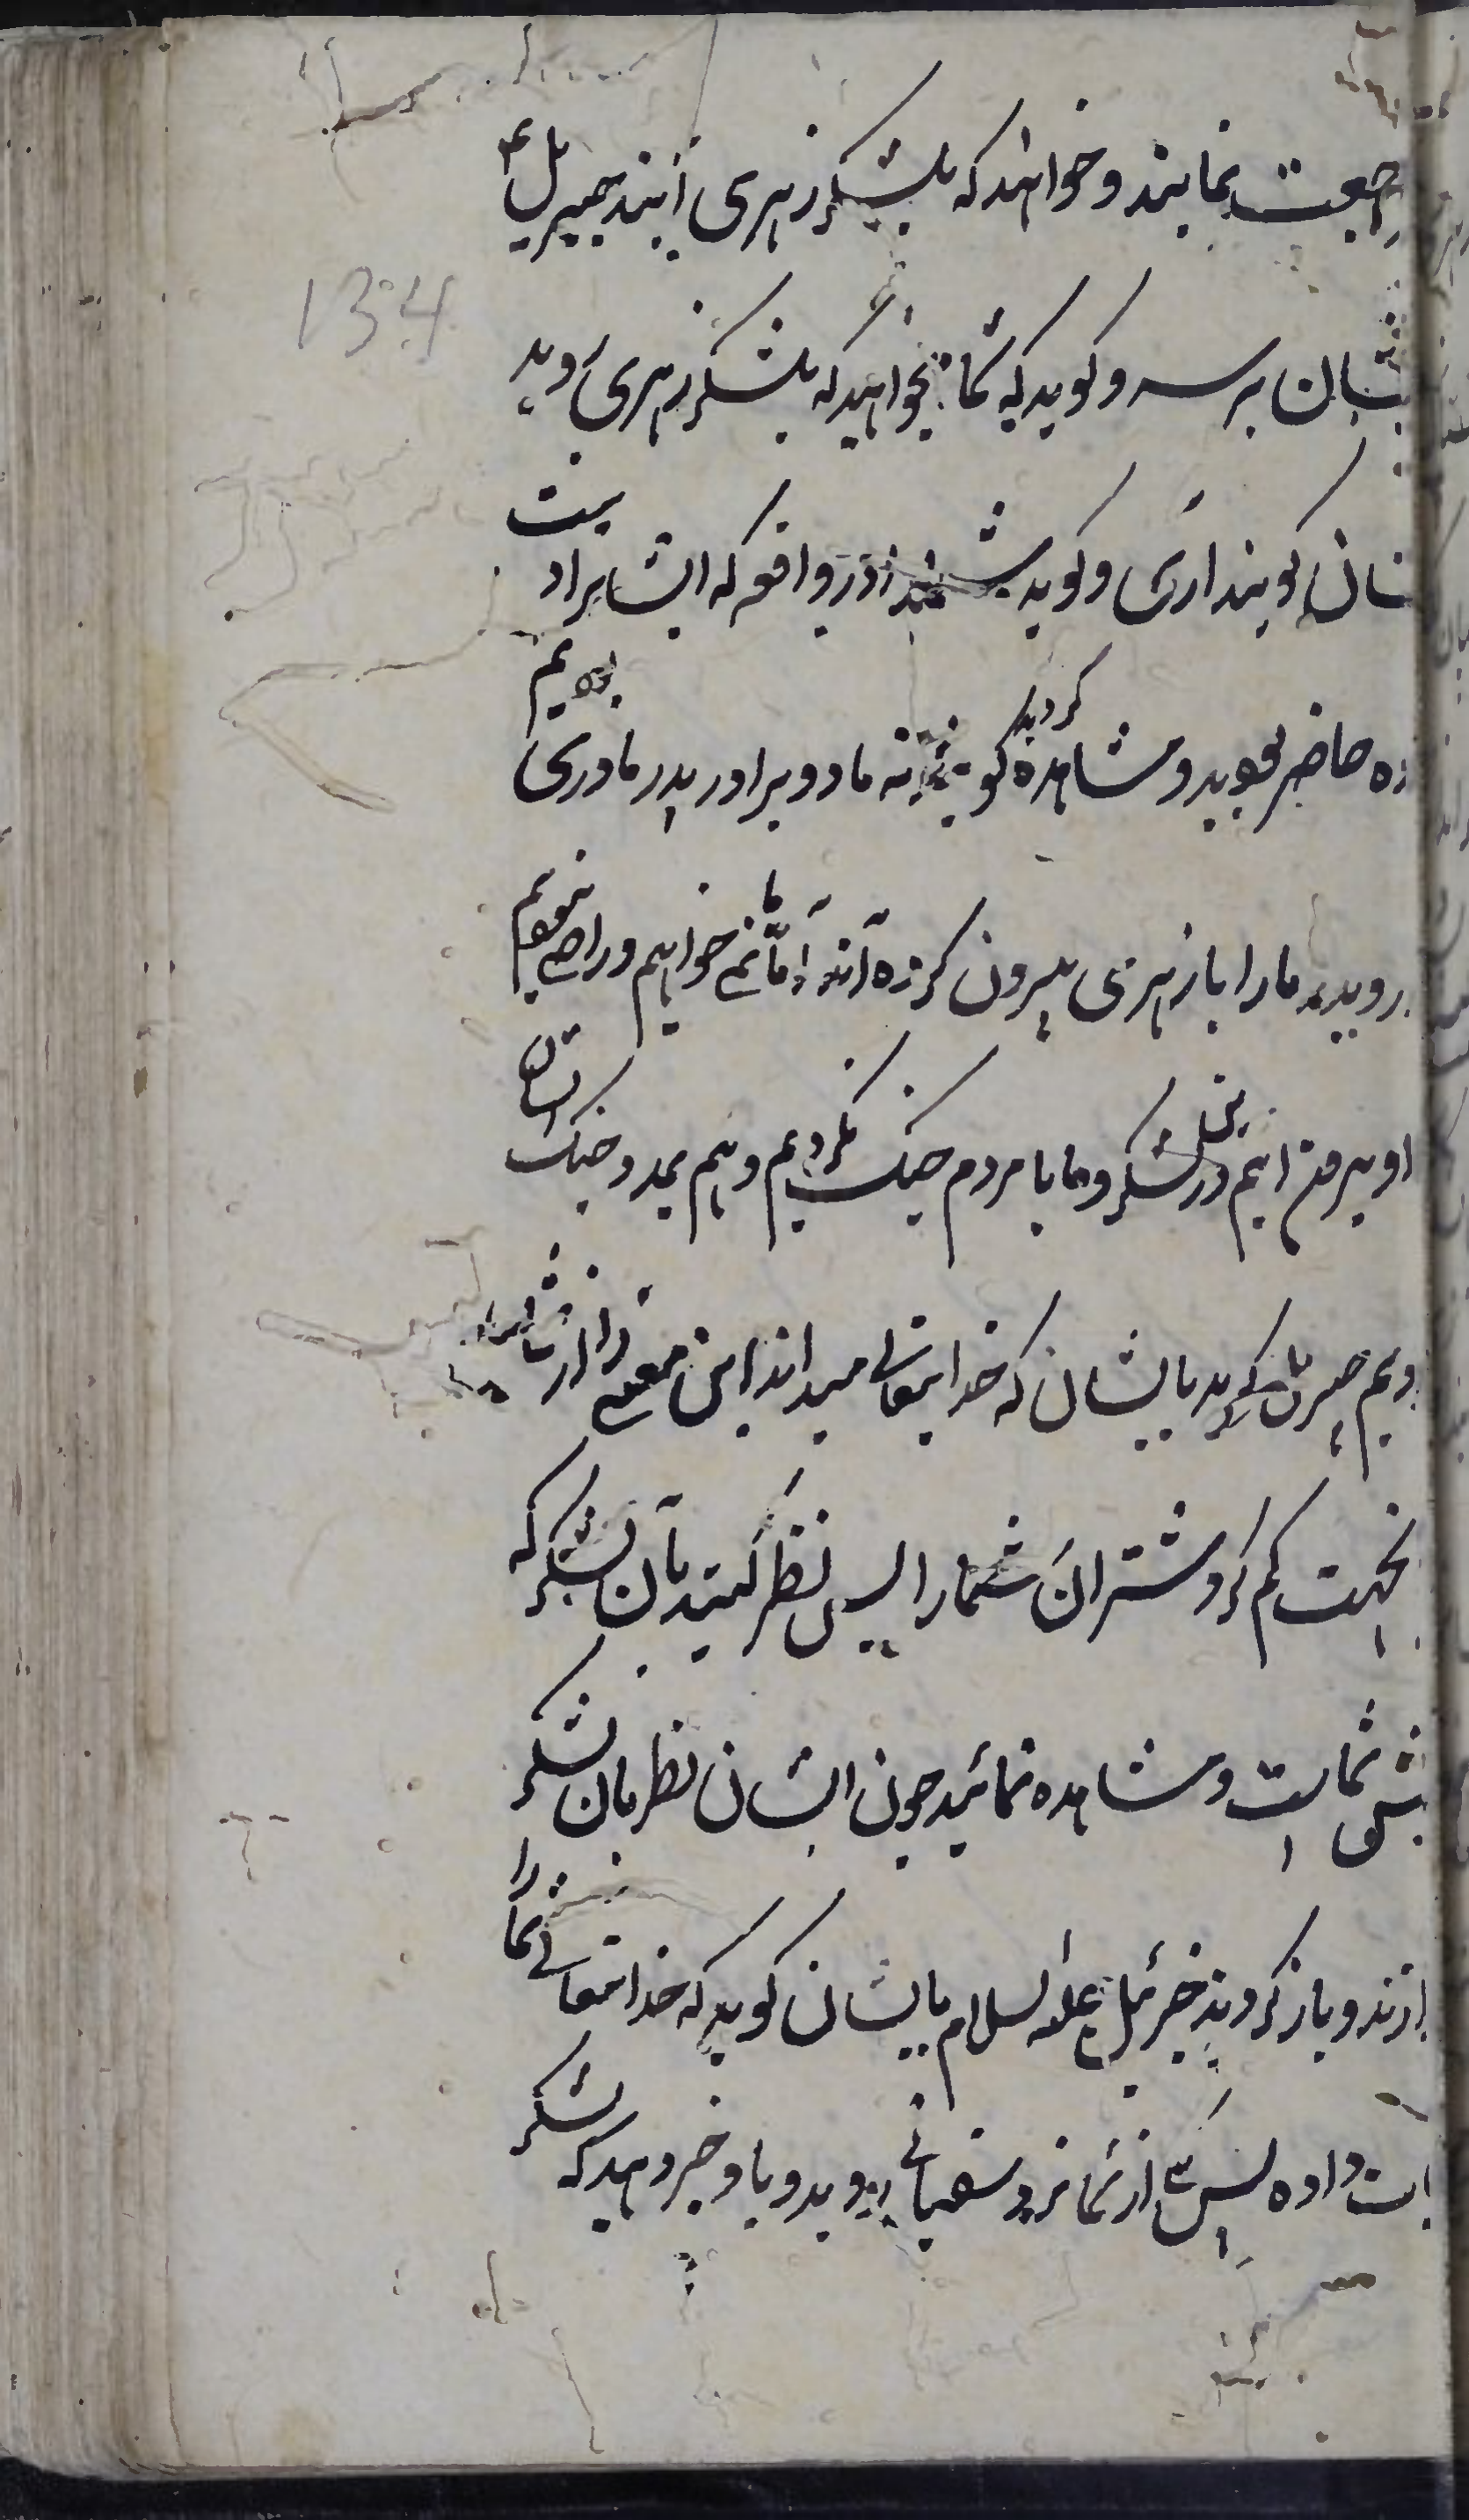 رجعت نمایند و خواهند که بلشکر زهری آیند جبریل ع
134
یشان برسد و کوید که شما میخواهید که بلشکر زهری روید
شان کویند آری و کوید در واقعه که ایشانرا دست
ده حاضر بودید و مشاهده کردید کویند نه ما دو برادر پدر مادری بودیم
روید ما را با زهری بیرون کرده اند اما ما نمی خواهیم و راضی نبودیم
او بیرون ایم در لشکر و ما با مردم جنک نکردیم و هم بمدد جنک ایشان
ودیم جبریل کوید بایشان که خدایتعالی میداند این معنی را از شما
بجهت کم کرد شتران شما را پس نظر کنید بآن لشکر که
پیش شماست و مشاهده نمائید چون ایشان نظر بآن لشکر
ازند و باز کردند جبرئیل علیه السلام بایشان کوید که خدایتعالی شما را
ات داده پس یکی از شما نزد سفیانی روید و باو خبر دهید که لشکر